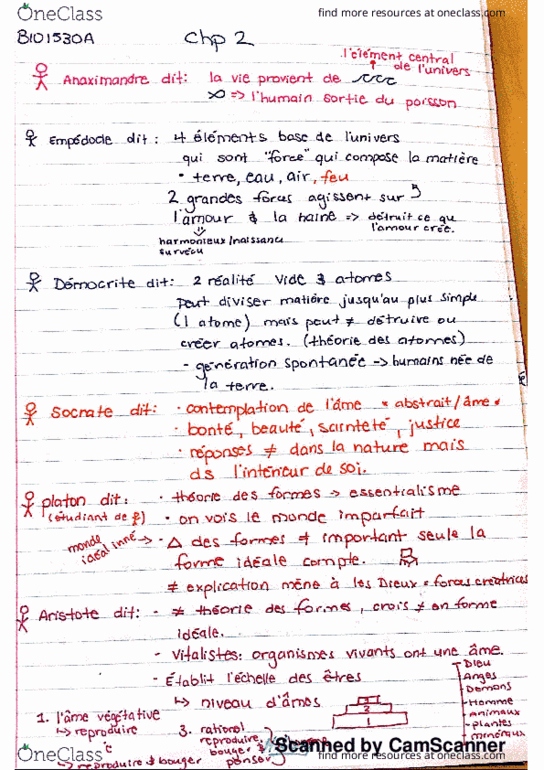 OneClass
find more resources at oneclass.com
BIO1530A
Chp 2
l'élément central
de l'univers
Anaximandre dit: la vie provient de
=> l'humain sortie du poisson
Empédocle dit: 4 éléments base de l'univers
qui sont "force" qui compose la matière
• terre, eau, air, feu
2 grandes forces agissent sur
l'amour & la haine => détruit ce qu
l'amour crée.
harmonieux/naissance
surveau
Démocrite dit: 2 réalité vide & atomes
peut diviser matière jusqu'au plus simple
(1 atome) mais peut ≠ détruire ou
créer atomes. (théorie des atomes)
- génération spontanée -> humains née de
la terre.
Socrate dit: • contemplation de l'âme * abstrait/âme *
• bonté, beauté, sainteté, justice
• réponses ≠ dans la nature mais
ds l'intérieur de soi.
platon dit: • théorie des formes -> essentialisme
(étudiant de
• on vois le monde imparfait
monde
idéal inné -> • Δ des formes ≠ important seule la
forme idéale compte.
≠ explication mène à les Dieux = forces créatrices
Aristote dit: - ≠ théorie des formes, crois ≠ en forme
idéale.
- Vitalistes: organismes vivants ont une âme.
- Établit l'échelle des êtres
↳ niveau d'âmes
3
2
1
Dieu
Anges
Demons
Homme
Animaux
plantes
minéraux
1. l'âme végétative
↳ reproduire
3. rational
reproduire,
bouger &
penser
↳ reproduire & bouger
Scanned by CamScanner
OneClass
find more resources at oneclass.com